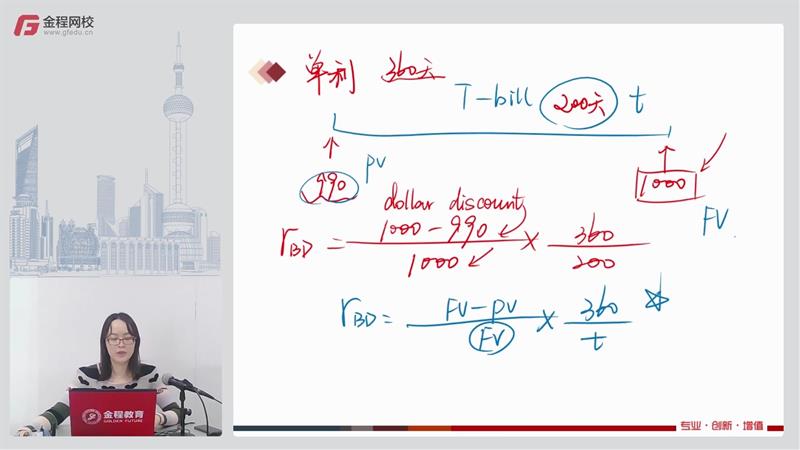 金程网校
www.gfedu.cn
单利 360天
T-bill 200天 t
990 PV
1000 FV
dollar discount
rBD = 1000-990 / 1000 × 360 / 200
rBD = FV-PV / FV × 360 / t
金程教育
GOLDEN FUTURE
专业·创新·增值